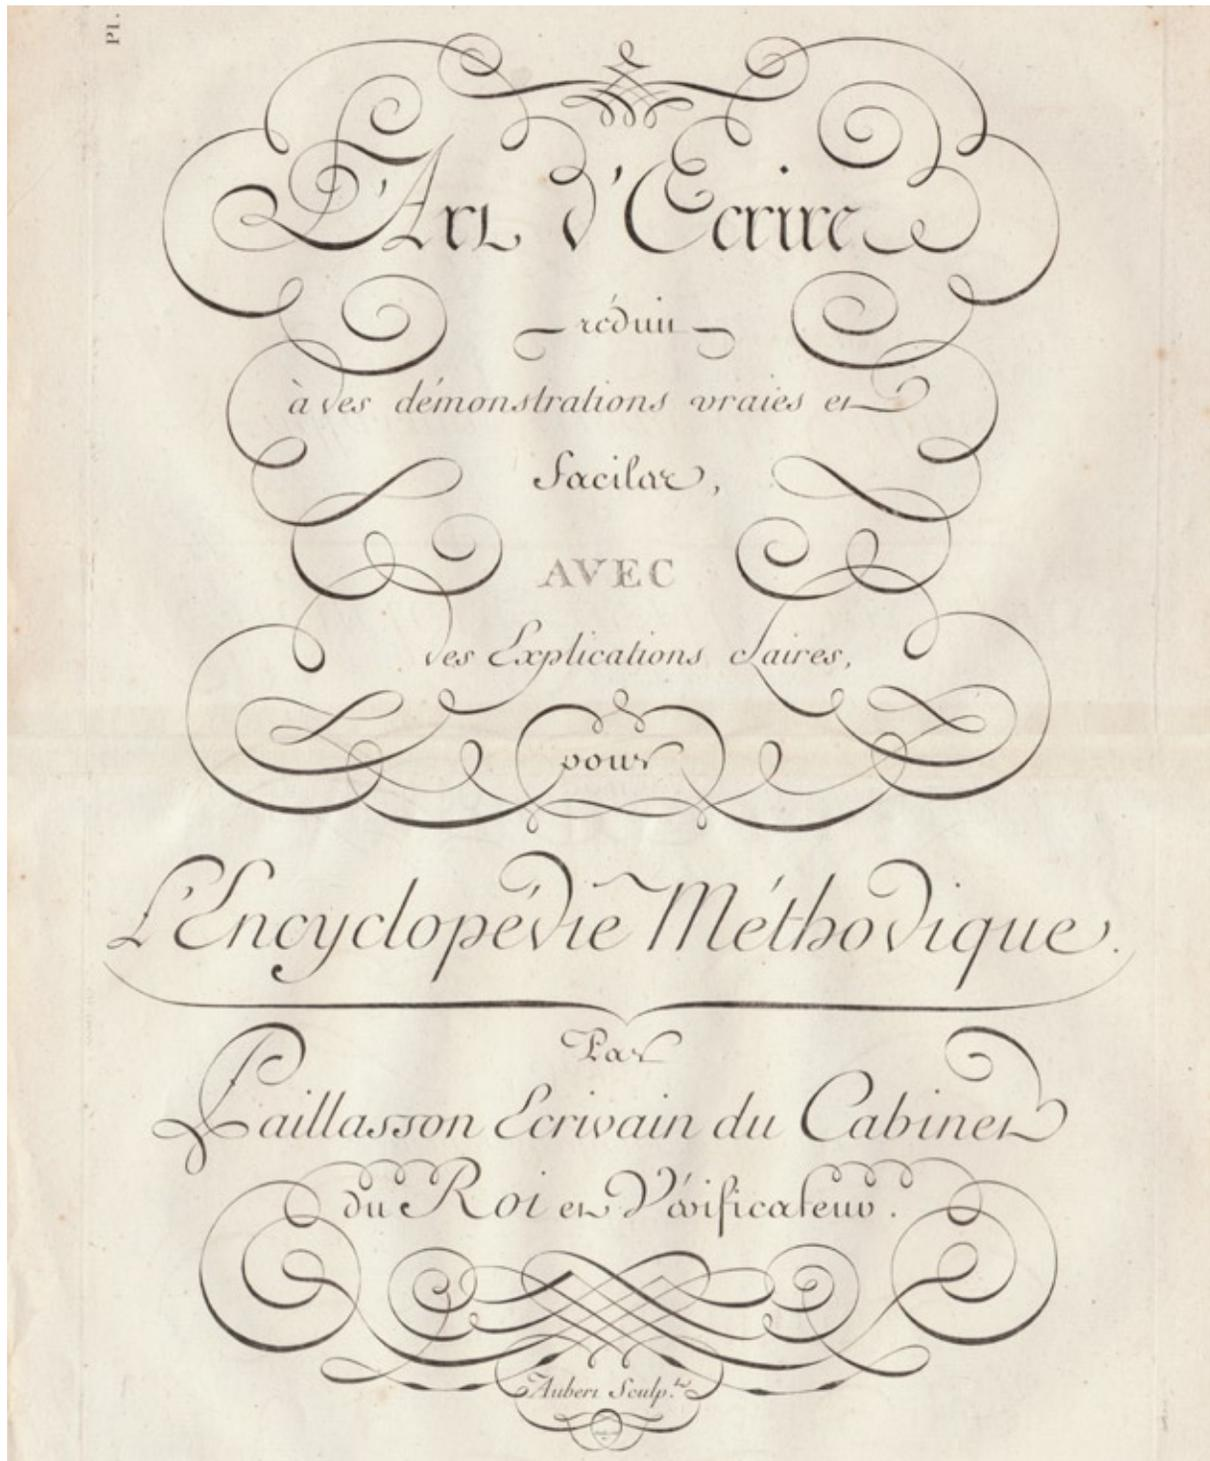 Pl.
L'Art d'Ecrire
réduit
à des démonstrations vraies et
faciles,
AVEC
des Explications claires,
pour
L'Encyclopédie Méthodique.
Par
Paillasson Ecrivain du Cabinet
du Roi et Vérificateur.
Aubert Sculp.